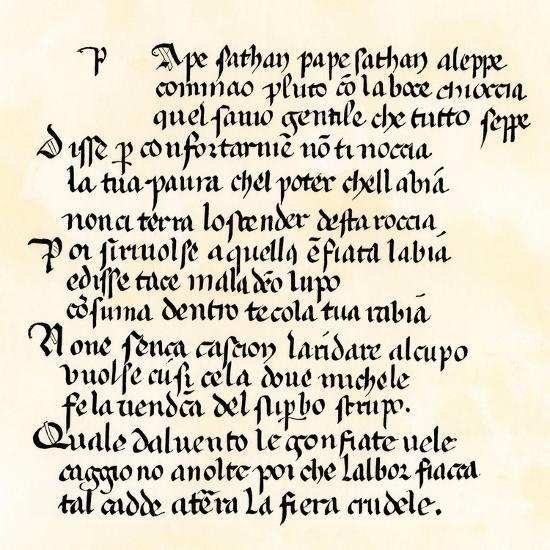 P Ape sathan pape sathan aleppe
comīnao pluto cō la boce chioccia
quel savio gentile che tutto seppe
Disse p confortarmē nō ti noccia
la tua paura chel poter chell abiā
non ci terra lo scender desta roccia
Poi si rivolse a quella ēfiata labiā
e disse tace maladēo lupo
cōsuma dentro te cola tua rabiā
Non e senca cascion laridare al cupo
vuolse cusi ce la dove michele
fe la vendcā del supbo strupo.
Quale dal vento le gonfiate vele
caggiono a nolte poi che lalbor fiacca
tal cadde atēra la fiera crudele.